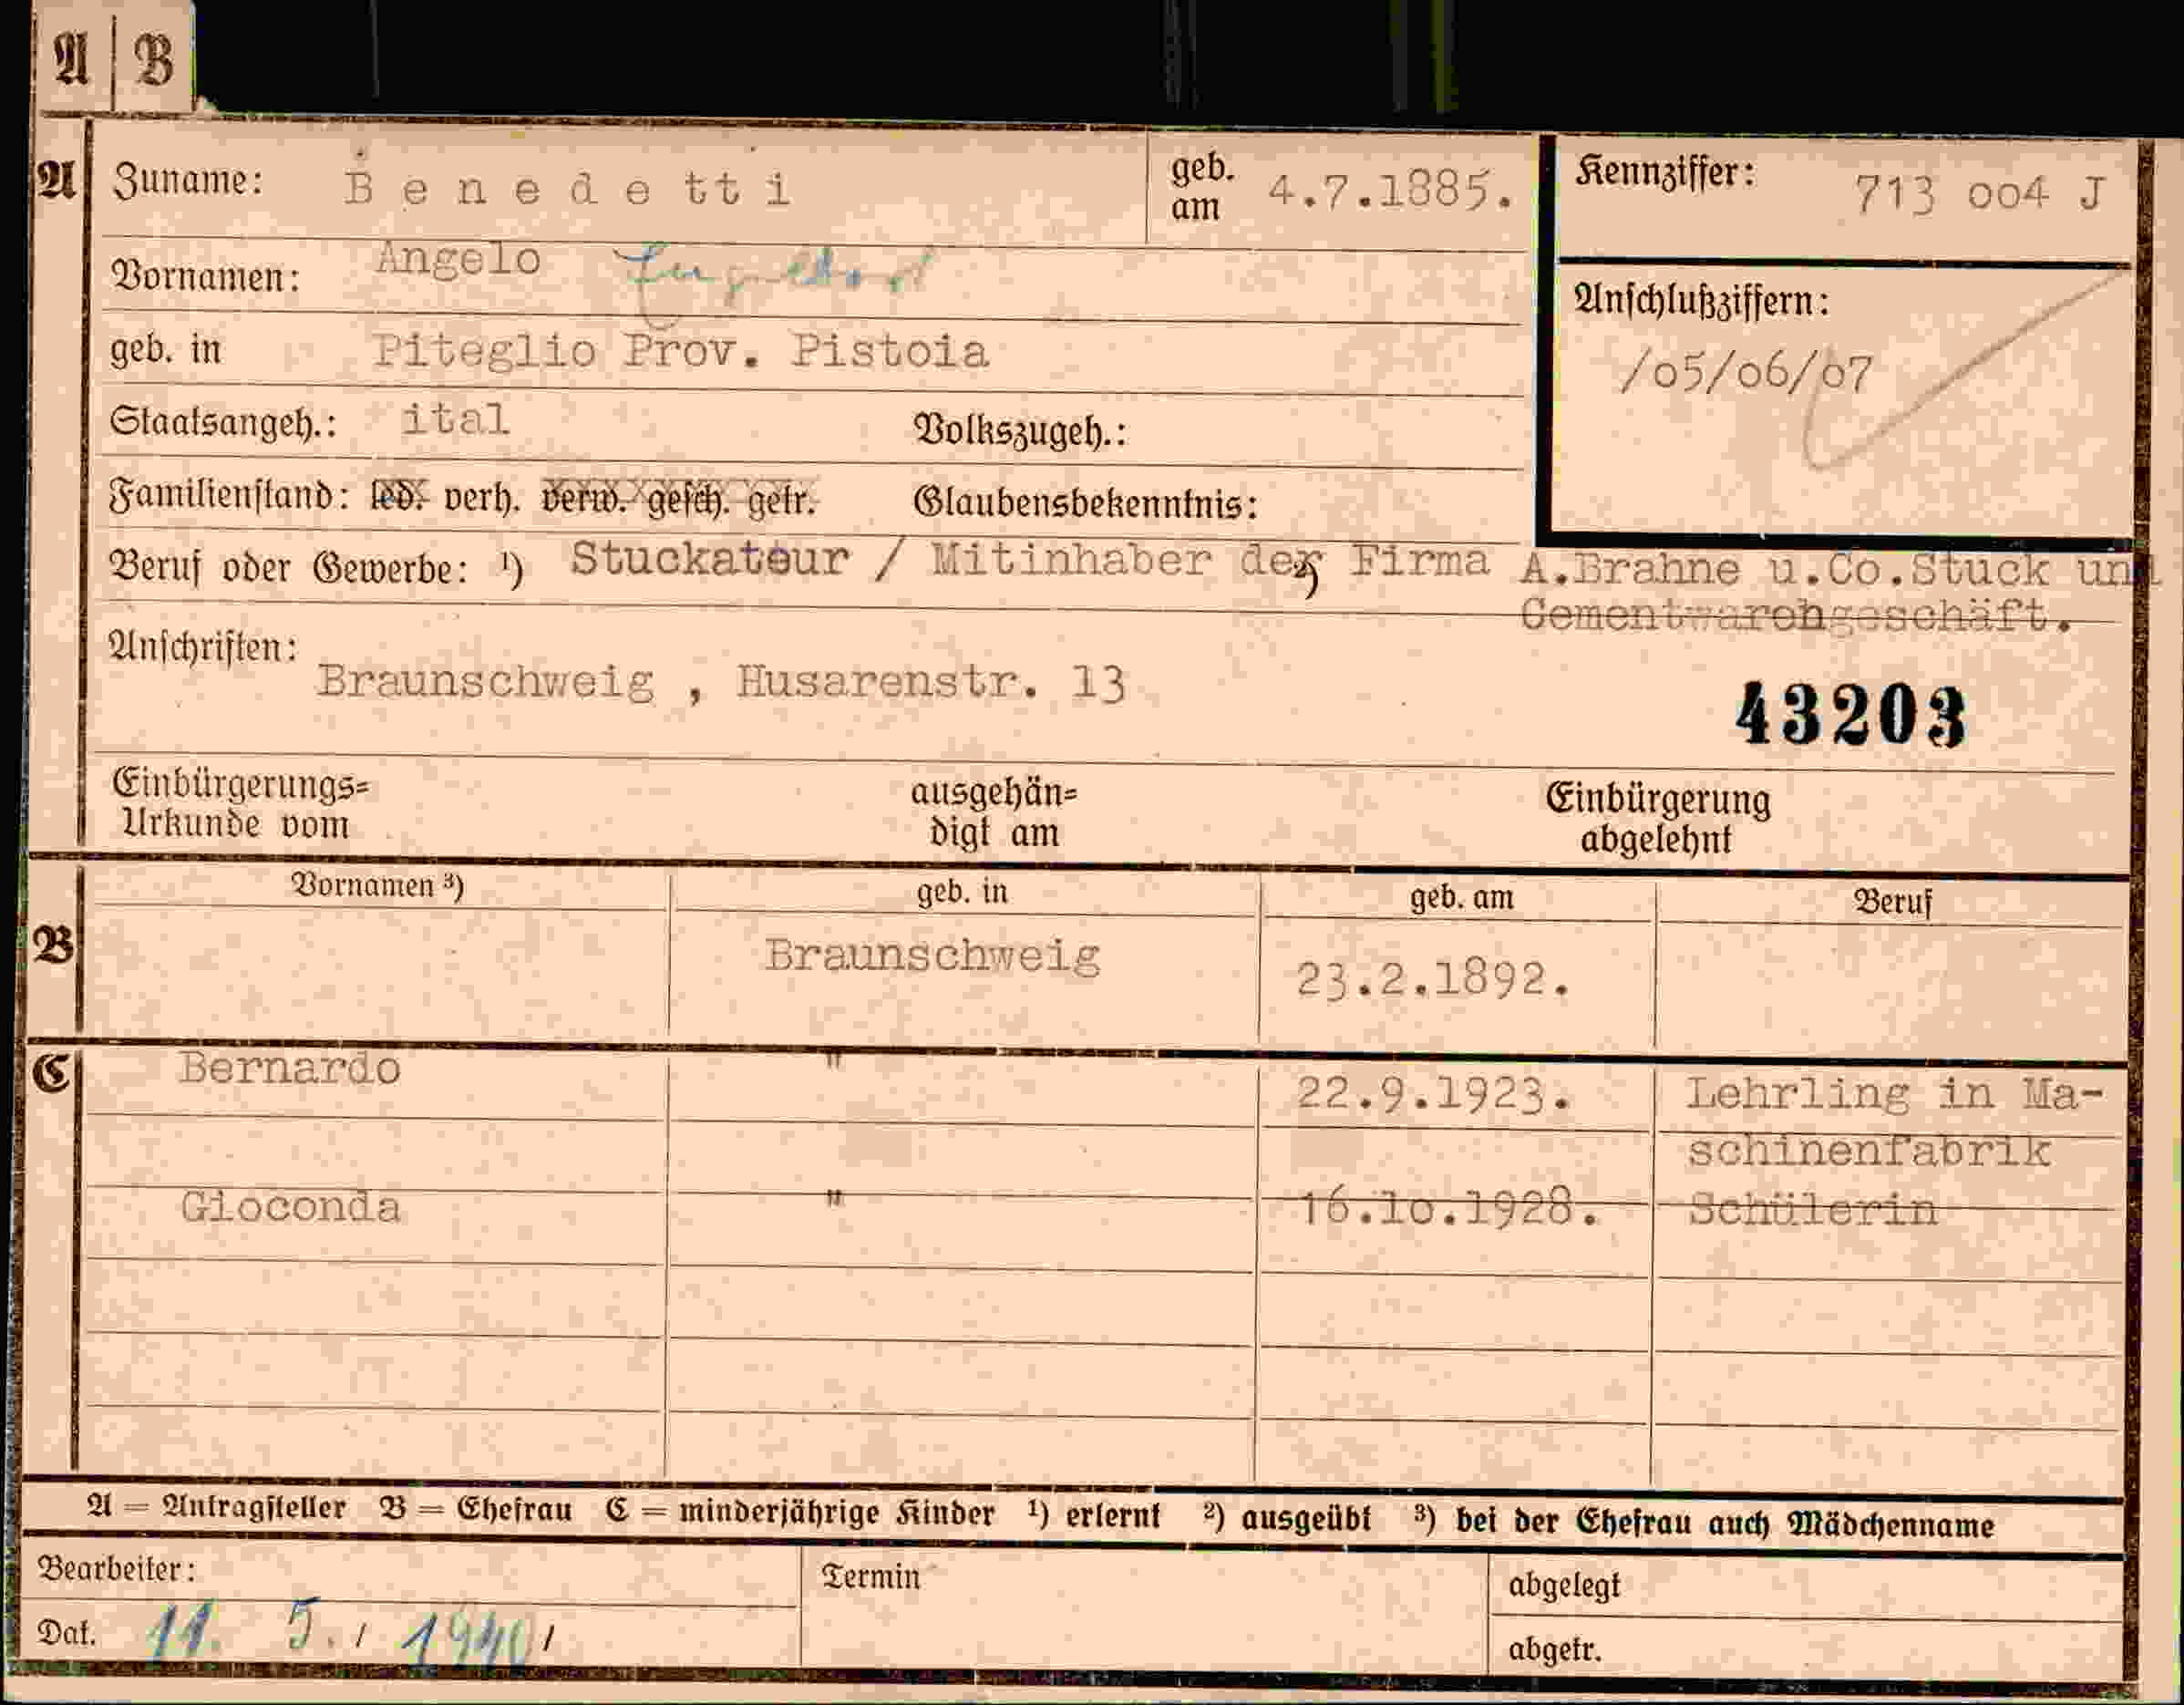 A | B
A Zuname: B e n e d e tt i geb. am 4.7.1885. Kennziffer: 713 oo4 J
Vornamen: Angelo
geb. in Piteglio Prov. Pistoia
Anschlußziffern:
/o5/o6/o7
Staatsangeh.: ital Volkszugeh.:
Familienstand: led. verh. verw. gesch. getr. Glaubensbekenntnis:
Beruf oder Gewerbe: ¹) Stuckateur / Mitinhaber der Firma A.Brahne u.Co.Stuck und
Cementwarengeschäft.
Anschriften:
Braunschweig , Husarenstr. 13
43203
Einbürgerungs=
Urkunde vom
ausgehän=
digt am
Einbürgerung
abgelehnt
Vornamen ³) geb. in geb. am Beruf
B Braunschweig 23.2.1892.
C Bernardo " 22.9.1923. Lehrling in Ma-
schinenfabrik
Gioconda " 16.1o.1928. Schülerin
A = Antragsteller B = Ehefrau C = minderjährige Kinder ¹) erlernt ²) ausgeübt ³) bei der Ehefrau auch Mädchenname
Bearbeiter: Termin abgelegt
Dat. 11. 5. 1940 abgetr.